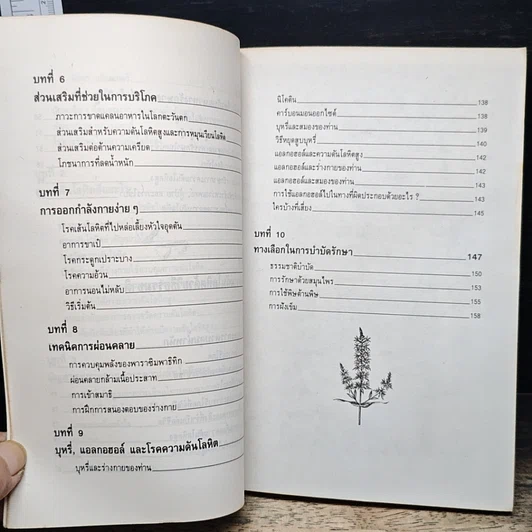 บทที่ 6
ส่วนเสริมที่ช่วยในการบริโภค
ภาวะการขาดแคลนอาหารในโลกตะวันตก
ส่วนเสริมสำหรับความดันโลหิตสูงและการหมุนเวียนโลหิต
ส่วนเสริมต่อต้านความเครียด
โภชนาการที่ลดน้ำหนัก
บทที่ 7
การออกกำลังกายง่าย ๆ
โรคเส้นโลหิตที่ไปหล่อเลี้ยงหัวใจอุดตัน
อาการขาเป๋
โรคกระดูกเปราะบาง
โรคความอ้วน
อาการนอนไม่หลับ
วิธีเริ่มต้น
บทที่ 8
เทคนิคการผ่อนคลาย
การควบคุมพลังของพาราซิมพาธิทีก
ผ่อนคลายกล้ามเนื้อประสาท
การเข้าสมาธิ
การฝึกการสนองตอบของร่างกาย
บทที่ 9
บุหรี่, แอลกอฮอล์ และโรคความดันโลหิต
บุหรี่และร่างกายของท่าน
นิโคติน 138
คาร์บอนมอนออกไซด์ 138
บุหรี่และสมองของท่าน 139
วิธีหยุดสูบบุหรี่ 140
แอลกอฮอล์และความดันโลหิตสูง 142
แอลกอฮอล์และร่างกายของท่าน 142
แอลกอฮอล์และสมองของท่าน 142
การใช้แอลกอฮอล์ไปในทางที่ผิดประกอบด้วยอะไร ? 143
ใครบ้างที่เสี่ยง 145
บทที่ 10
ทางเลือกในการบำบัดรักษา 147
ธรรมชาติบำบัด 150
การรักษาด้วยสมุนไพร 153
การใช้พิษต้านพิษ 155
การฝังเข็ม 158